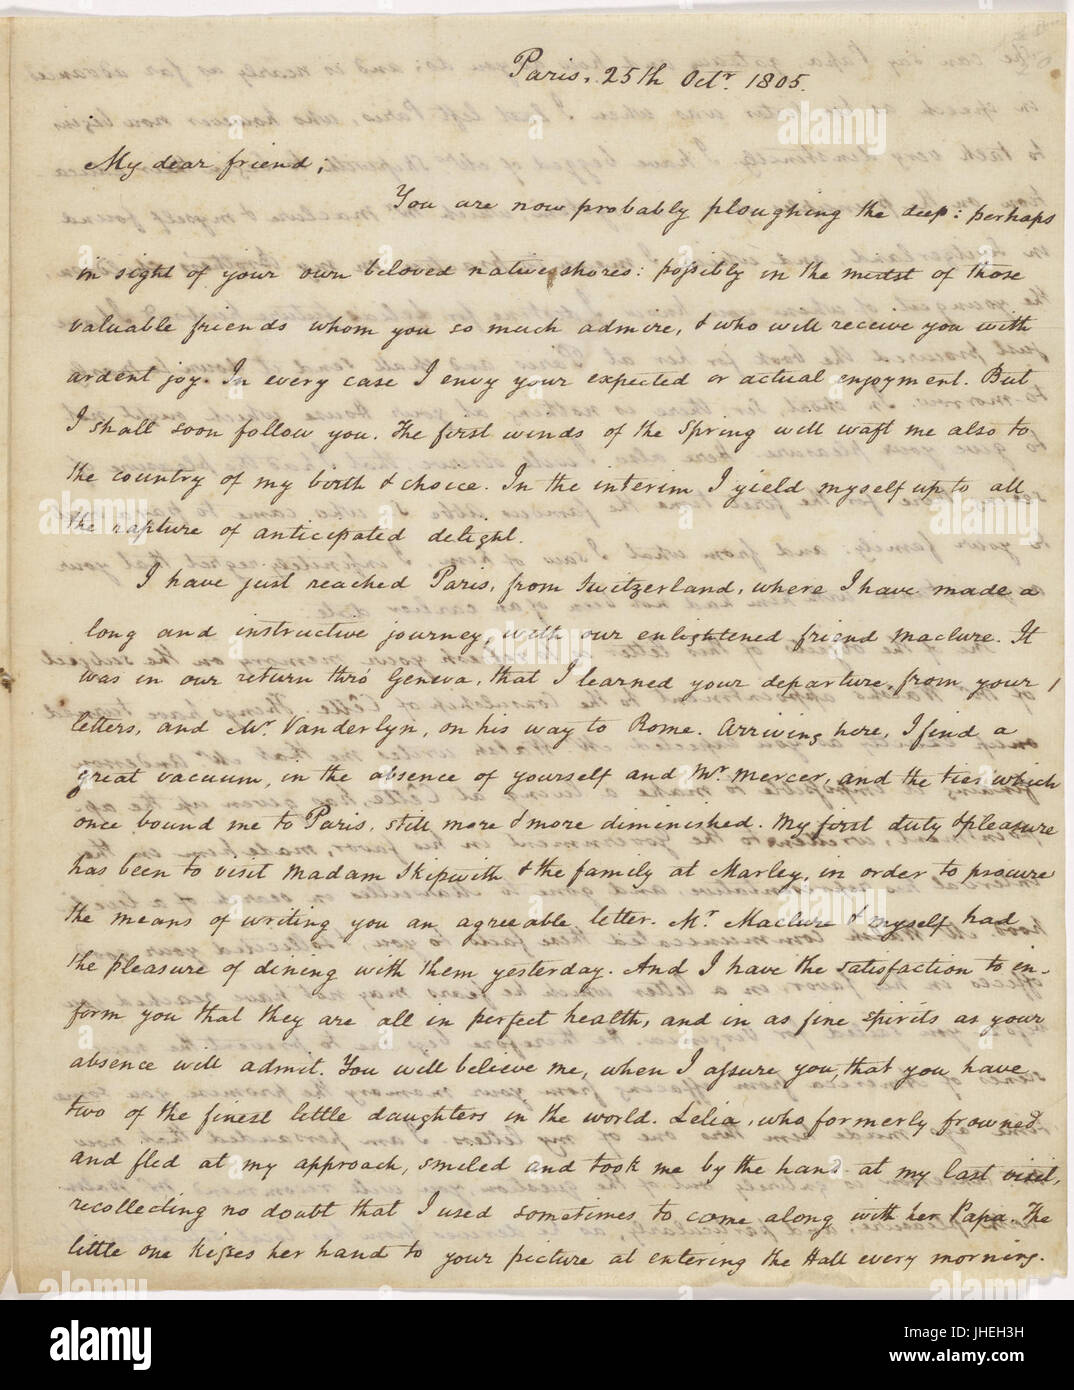 Paris, 25th Octr. 1805.
My dear friend,
You are now probably ploughing the deep: perhaps
in sight of your own beloved native shores: possibly in the midst of those
valuable friends whom you so much admire, & who will receive you with
ardent joy. In every case I envy your expected or actual enjoyment. But
I shall soon follow you. The first winds of the Spring will waft me also to
the country of my birth & choice. In the interim I yield myself up to all
the rapture of anticipated delight.
I have just reached Paris, from Switzerland, where I have made a
long and instructive journey, with our enlightened friend Maclure. It
was in our return thro' Geneva, that I learned your departure, from your
letters, and Mr. Vanderlyn, on his way to Rome. Arriving here, I find a
great vacuum, in the absence of yourself and Mr. Mercer, and the ties which
once bound me to Paris, still more & more diminished. My first duty & pleasure
has been to visit Madam Skipwith & the family at Marley, in order to procure
the means of writing you an agreeable letter. Mr. Maclure & myself had
the pleasure of dining with them yesterday. And I have the satisfaction to in-
form you that they are all in perfect health, and in as fine spirits as your
absence will admit. You will believe me, when I assure you, that you have
two of the finest little daughters in the world. Lelia, who formerly frowned
and fled at my approach, smiled and took me by the hand at my last visit,
recollecting no doubt that I used sometimes to come along with her Papa. The
little one kisses her hand to your picture at entering the Hall every morning.
alamy
alamy stock photo
JHEH3H
www.alamy.com